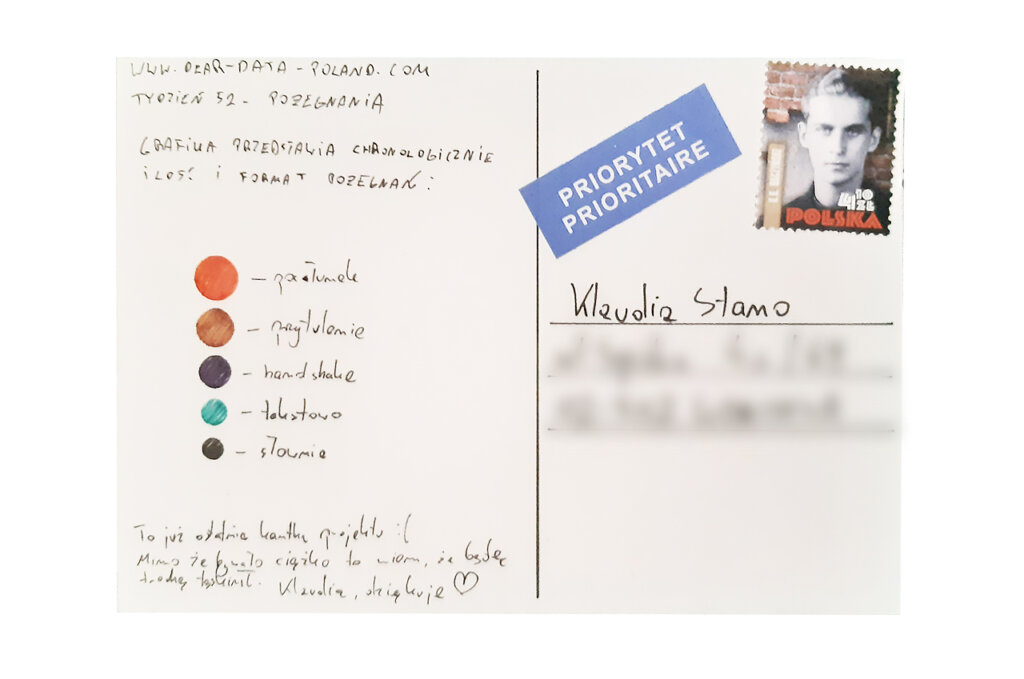 WWW.DEAR-DATA-POLAND.COM
TYDZIEŃ 52 - POŻEGNANIA
GRAFIKA PRZEDSTAWIA CHRONOLOGICZNIE
ILOŚĆ I FORMAT POŻEGNAŃ:
- pocałunek
- przytulenie
- handshake
- tekstowo
- słownie
To już ostatnia kartka projektu :(
Mimo że bywało ciężko to wiem, że będę
trochę tęsknił. Klaudia, dziękuję ♡
PRIORYTET
PRIORITAIRE
4 10 ZŁ
POLSKA
Klaudia Stamo